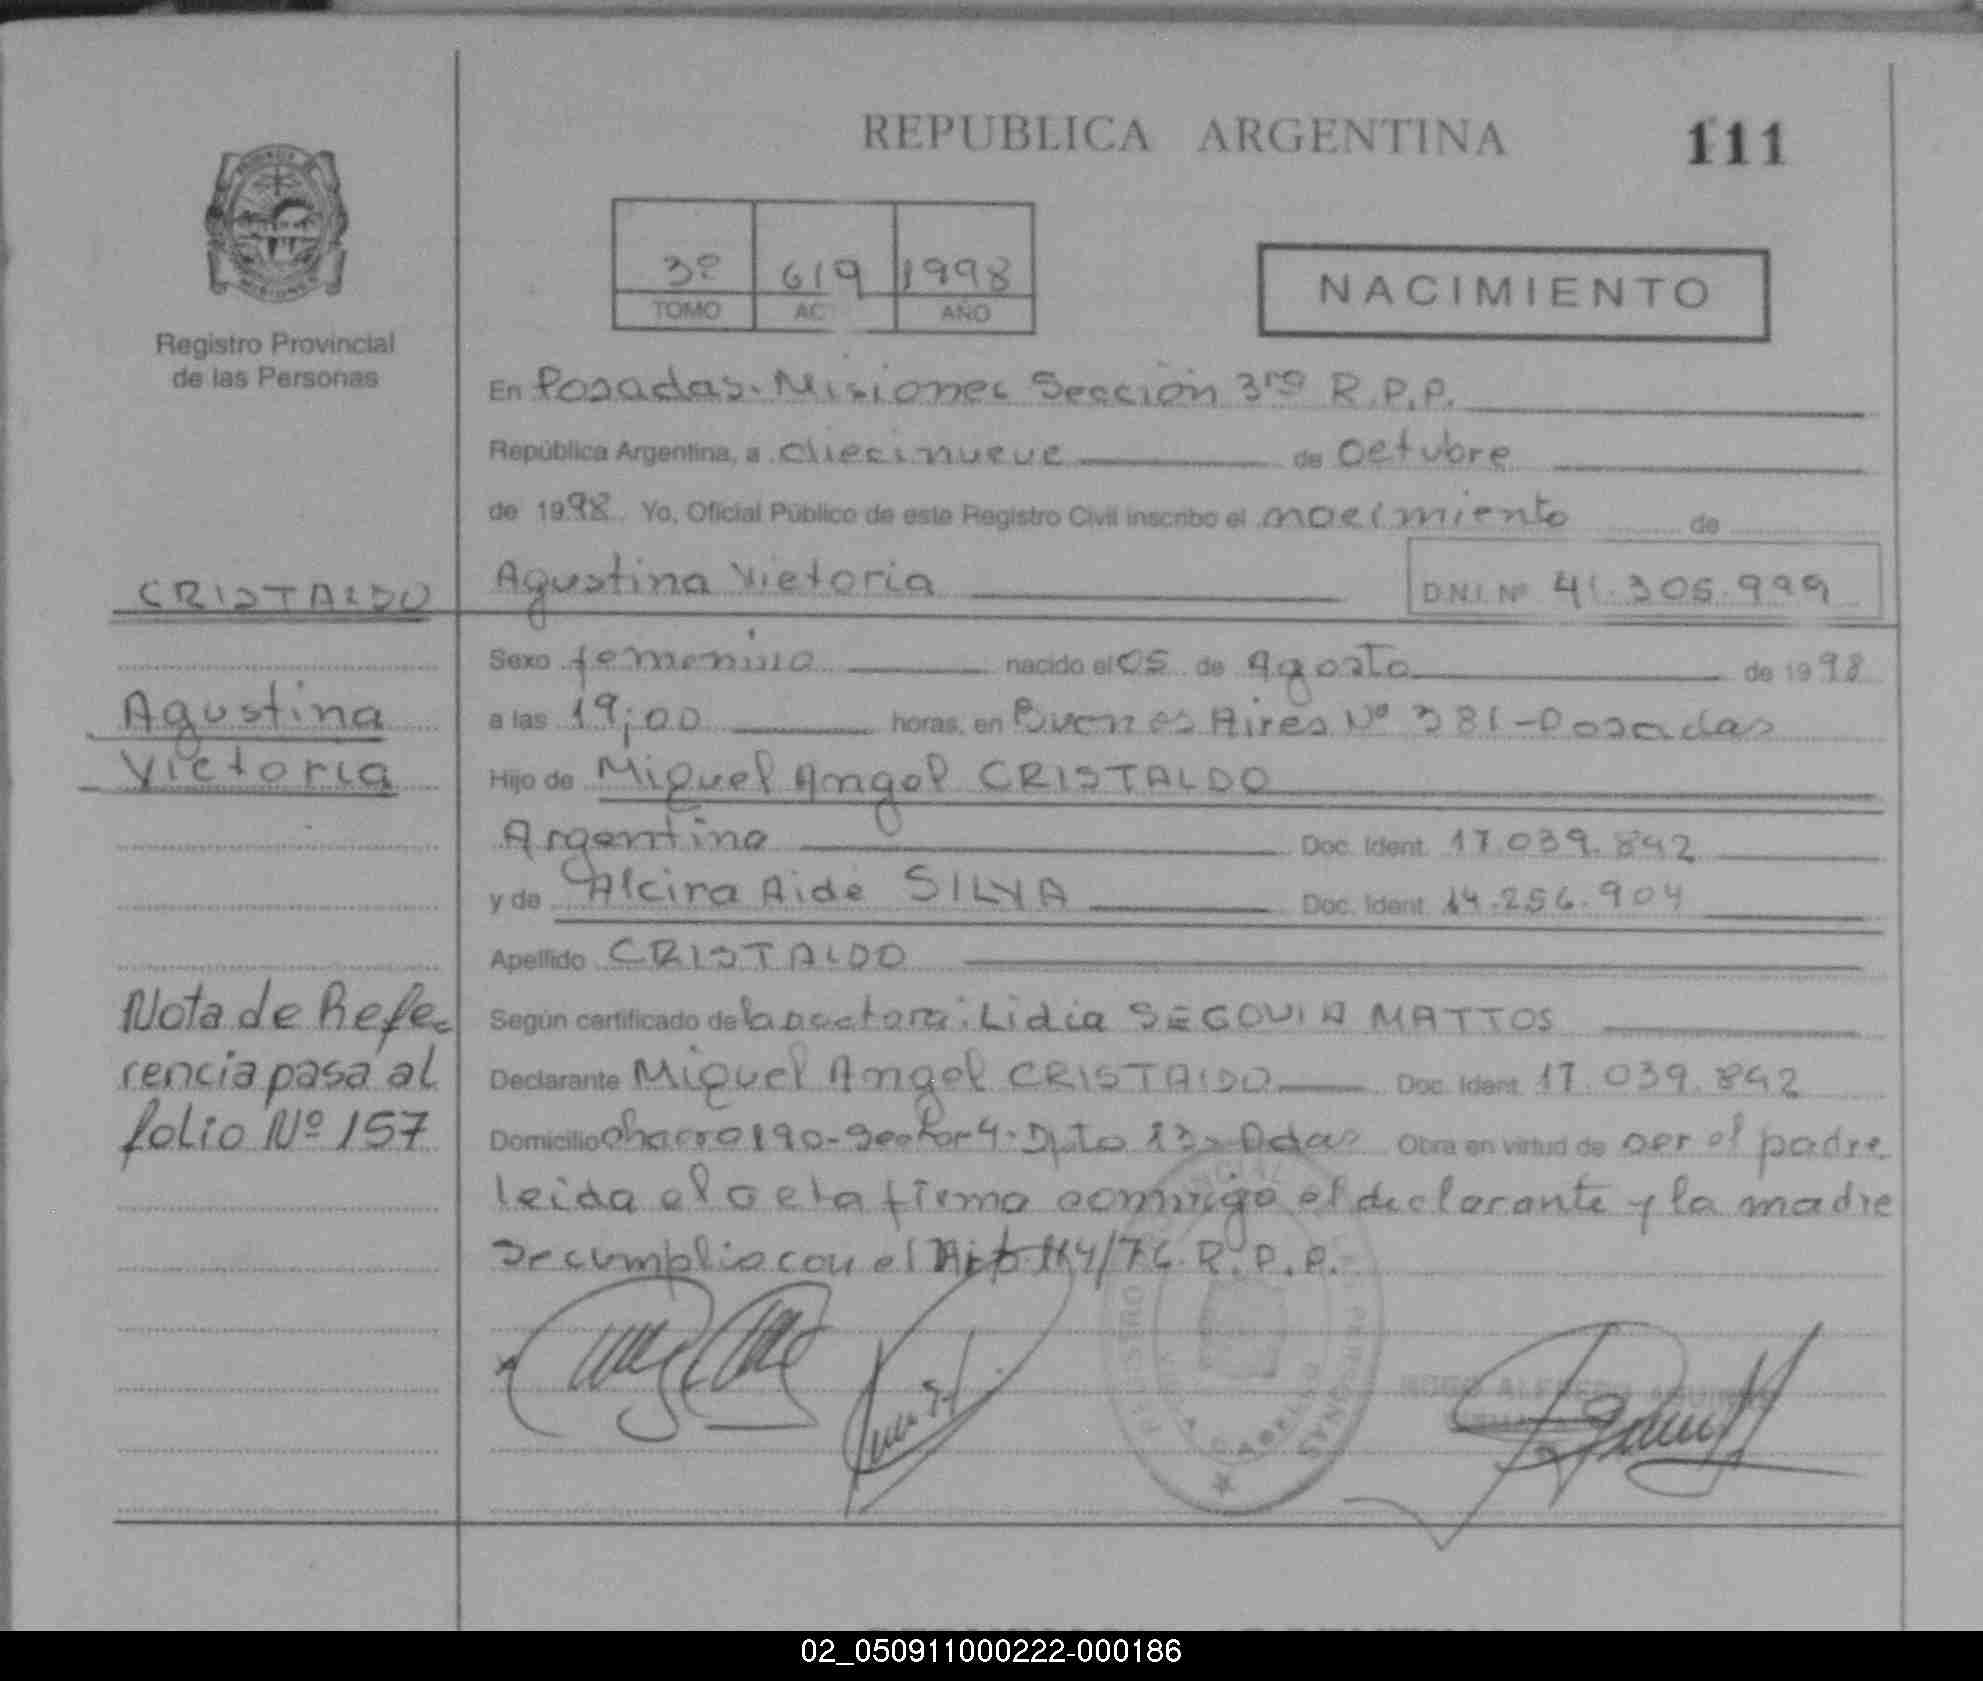 REPUBLICA ARGENTINA
111
3º 619 1998
TOMO AC AÑO
NACIMIENTO
MISIONES
Registro Provincial
de las Personas
En Posadas. Misiones Sección 3ra R.P.P.
República Argentina, a diecinueve de Octubre
de 1998 Yo, Oficial Público de este Registro Civil inscribo el nacimiento de
Agustina Victoria
D.N.I. Nº 41.305.999
CRISTALDO
Agustina
Victoria
Sexo femenino nacido el 05 de Agosto de 1998
a las 19;00 horas, en Buenos Aires Nº 381-Posadas
Hijo de Miguel Angel CRISTALDO
Argentino Doc. Ident. 17.039.842
y de Alcira Aide SILVA Doc. Ident. 14.256.904
Apellido CRISTALDO
Nota de Refe-
rencia pasa al
folio Nº 157
Según certificado de la doctora: Lidia SEGOVIA MATTOS
Declarante Miguel Angel CRISTALDO Doc. Ident. 17.039.842
Domicilio chacra 190-Sector 4-Dpto 13- Pdas Obra en virtud de ser el padre
leida el acta firma conmigo el declarante y la madre
Se cumplio con el 114/76 R.P.P.
02_050911000222-000186